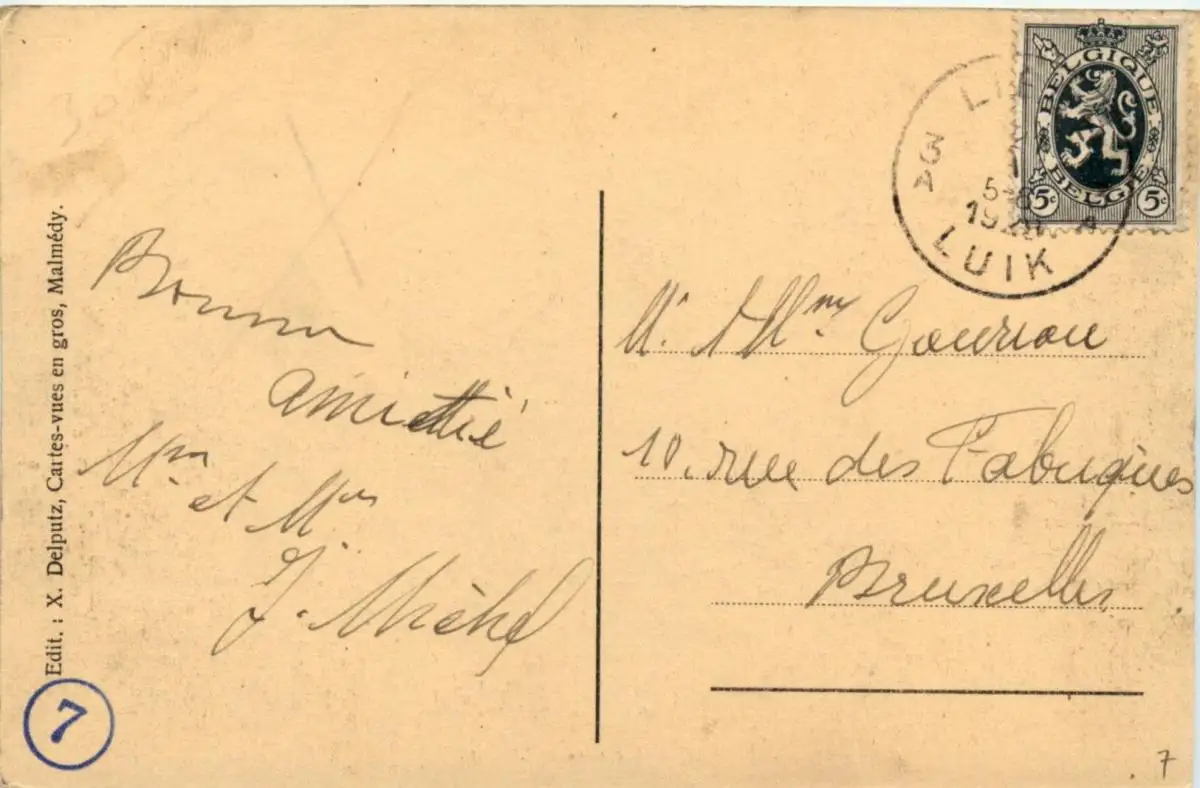 Edit. : X. Delputz, Cartes-vues en gros, Malmédy.
7
Bonne
amitié
Mr et Mme
J. Michel
BELGIQUE
BELGIE
5c 5c
LIE
3
A
A
LUIK
Mr & Mme Gourion
10. rue des Fabriques
Bruxelles.
7